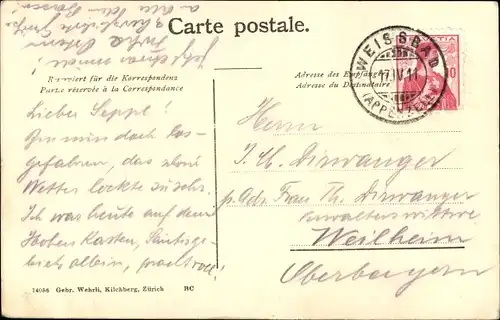 Carte postale.
Reserviert für die Korrespondenz
Partie réservée à la Correspondance
Adresse des Empfängers
Adresse du Destinataire
WEISSBAD
17.IV.11
(APPENZELL)
10
Lieber Seppl!
Bin nun doch los-
gefahren, das schöne
Wetter lockte zu sehr.
Ich war heute auf dem
Hohen Kasten, Säntisge-
biet allein, prachtvoll!
Herrn
J. Dirwanger
p. Adr. Frau Th. Dirwanger
Verwalterswittwe
Weilheim
Oberbayern
14056 Gebr. Wehrli, Kilchberg, Zürich BC